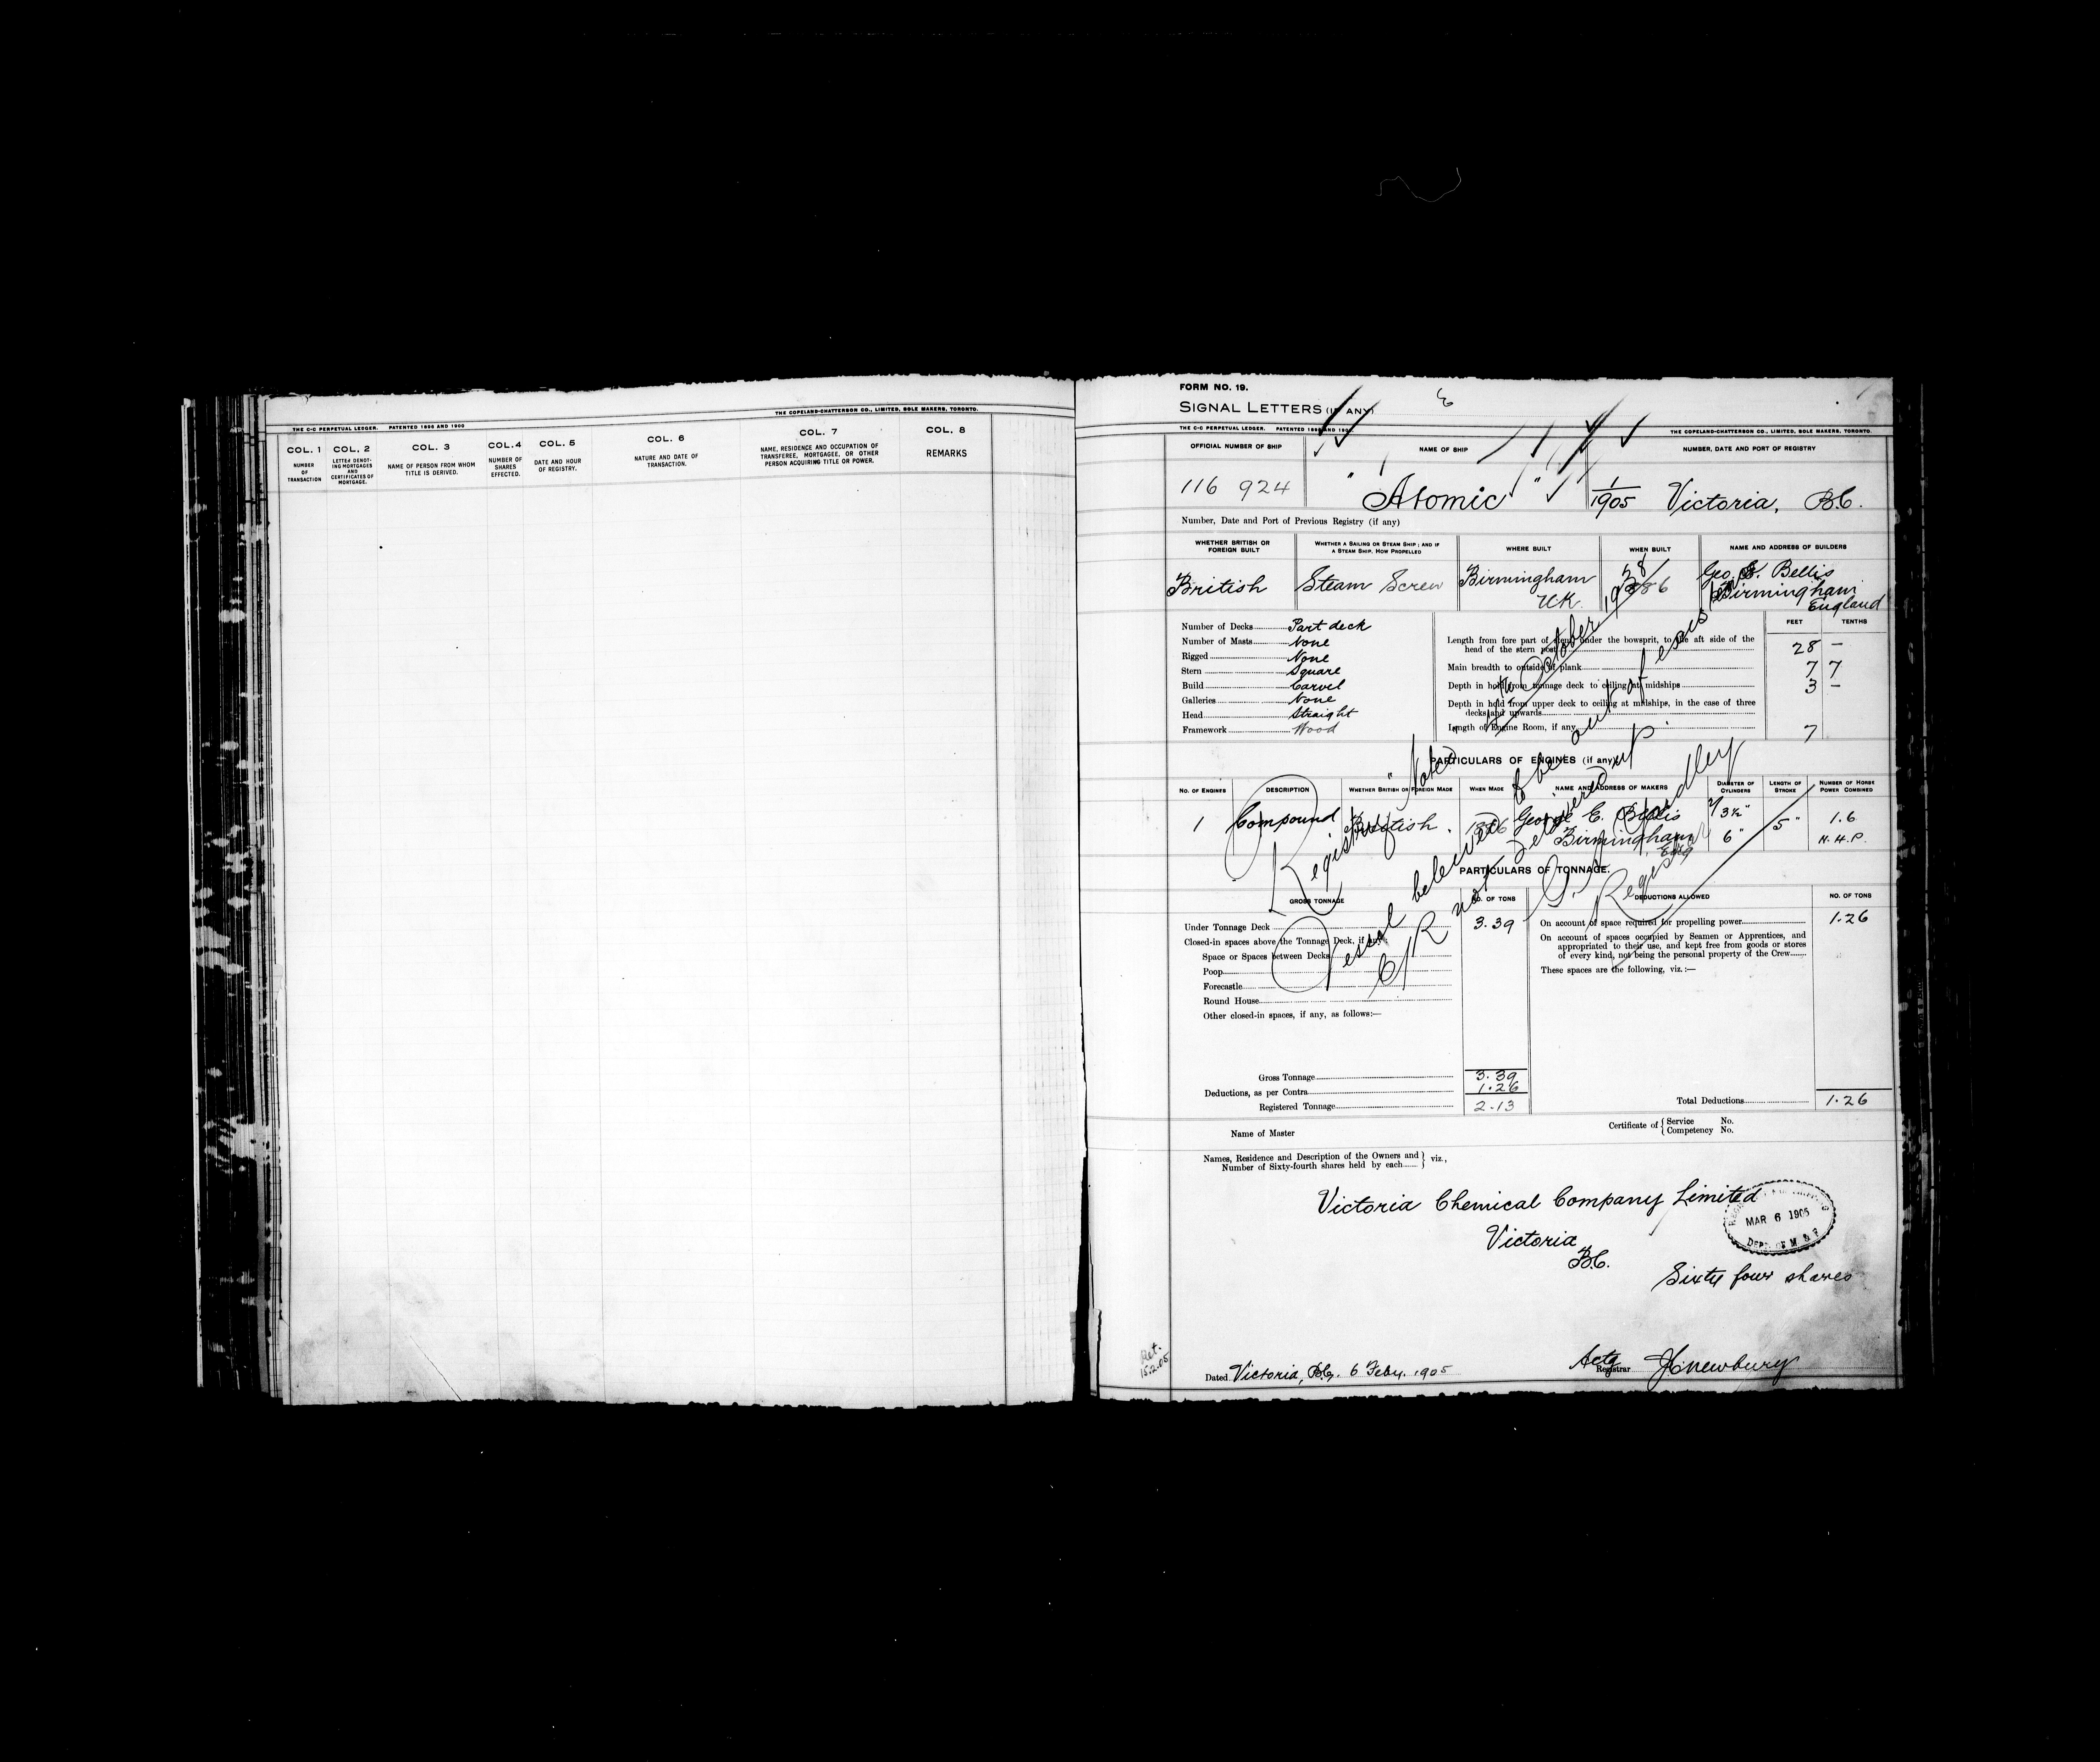 THE C-C PERPETUAL LEDGER. PATENTED 1896 AND 1900
THE COPELAND-CHATTERSON CO., LIMITED, SOLE MAKERS, TORONTO.
COL. 1
NUMBER
OF
TRANSACTION
COL. 2
LETTER DENOT-
ING MORTGAGES
AND
CERTIFICATES OF
MORTGAGE.
COL. 3
NAME OF PERSON FROM WHOM
TITLE IS DERIVED.
COL. 4
NUMBER OF
SHARES
EFFECTED.
COL. 5
DATE AND HOUR
OF REGISTRY.
COL. 6
NATURE AND DATE OF
TRANSACTION.
COL. 7
NAME, RESIDENCE AND OCCUPATION OF
TRANSFEREE, MORTGAGEE, OR OTHER
PERSON ACQUIRING TITLE OR POWER.
COL. 8
REMARKS
FORM NO. 19.
SIGNAL LETTERS (IF ANY)
THE C-C PERPETUAL LEDGER. PATENTED 1896 AND 1900
THE COPELAND-CHATTERSON CO., LIMITED, SOLE MAKERS, TORONTO.
OFFICIAL NUMBER OF SHIP
NAME OF SHIP
NUMBER, DATE AND PORT OF REGISTRY
116 924
"Atomic"
1/1905 Victoria, B.C.
Number, Date and Port of Previous Registry (if any)
WHETHER BRITISH OR
FOREIGN BUILT
WHETHER A SAILING OR STEAM SHIP; AND IF
A STEAM SHIP, HOW PROPELLED
WHERE BUILT
WHEN BUILT
NAME AND ADDRESS OF BUILDERS
British
Steam Screw
Birmingham
U.K.
1886
Geo. C. Bellis
Birmingham
England
Number of Decks Part deck
Number of Masts None
Rigged None
Stern Square
Build Carvel
Galleries None
Head Straight
Framework Wood
FEET TENTHS
Length from fore part of stem, under the bowsprit, to the aft side of the
head of the stern post 28 –
Main breadth to outside of plank 7 7
Depth in hold from tonnage deck to ceiling at midships 3 –
Depth in hold from upper deck to ceiling at midships, in the case of three
decks and upwards
Length of Engine Room, if any 7
PARTICULARS OF ENGINES (if any)
NO. OF ENGINES
DESCRIPTION
WHETHER BRITISH OR FOREIGN MADE
WHEN MADE
NAME AND ADDRESS OF MAKERS
DIAMETER OF
CYLINDERS
LENGTH OF
STROKE
NUMBER OF HORSE
POWER COMBINED
1 Compound British. 1886 George C. Bellis 3½" 5" 1.6
Birmingham 6" N.H.P.
Eng
PARTICULARS OF TONNAGE.
GROSS TONNAGE
NO. OF TONS
DEDUCTIONS ALLOWED
NO. OF TONS
Under Tonnage Deck 3.39
Closed-in spaces above the Tonnage Deck, if any
Space or Spaces between Decks
Poop
Forecastle
Round House
Other closed-in spaces, if any, as follows:—
On account of space required for propelling power 1.26
On account of spaces occupied by Seamen or Apprentices, and
appropriated to their use, and kept free from goods or stores
of every kind, not being the personal property of the Crew
These spaces are the following, viz.:—
Gross Tonnage 3.39
Deductions, as per Contra 1.26
Registered Tonnage 2.13
Total Deductions 1.26
Registry Noted
October
Vessel believed to be out of
C/R not delivered up.
Registrar
Name of Master
Certificate of { Service No.
Competency No.
Names, Residence and Description of the Owners and
Number of Sixty-fourth shares held by each } viz.,
Victoria Chemical Company Limited
Victoria
B.C.
Sixty four shares
MAR 6 1905
DEPT. OF M & F
Ret.
15.2.05
Dated Victoria, B.C. 6 Feby. 1905
Actg
Registrar
J C Newbury